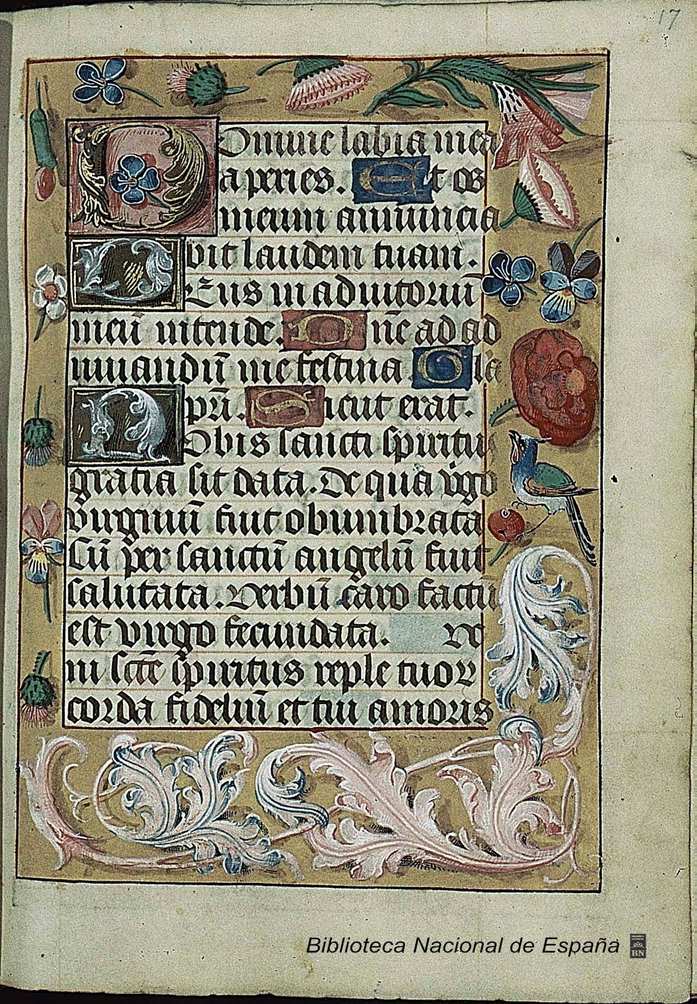 17
Domine labia mea
aperies. Et os
meum annuncia
bit laudem tuam.
Deus in adiutoriū
meū intende. Dn̄e ad ad
iuuandū me festina Gla
pr̄i. Sicut erat.
Nobis sancti spiritu
gratia sit data. De qua v̄go
virginū fuit obumbrata
Cū per sanctū angelū fuit
salutata. Verbū caro factū
est virgo fecundata. Ve
ni sctē spiritus reple tuoꝝ
corda fideliū et tui amoris
Biblioteca Nacional de España
BN